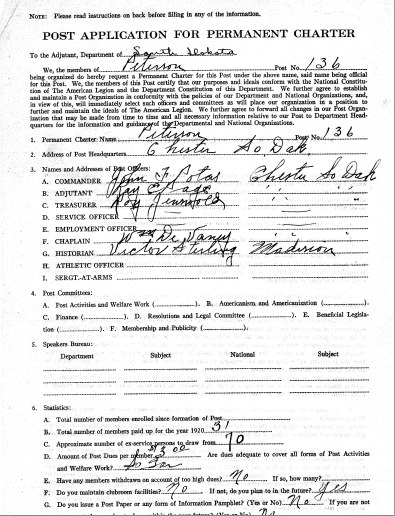 NOTE: Please read instructions on back before filling in any of the information.
POST APPLICATION FOR PERMANENT CHARTER
To the Adjutant, Department of South Dakota
We, the members of Peterson Post No. 136
being organized do hereby request a Permanent Charter for this Post under the above name, said name being official
for this Post. We, the members of this Post certify that our purposes and ideals conform with the National Constitu-
tion of The American Legion and the Department Constitution of this Department. We further agree to establish
and maintain a Post Constitution in conformity with the policies of our Department and National Organizations, and,
in view of this, will immediately select such officers and committees as will place our organization in a position to
further and maintain the ideals of The American Legion. We further agree to forward all changes in our Post Organi-
zation that may be made from time to time and all necessary information relative to our Post to Department Head-
quarters for the information and guidance of the Departmental and National Organizations.
1. Permanent Charter Name Peterson Post No. 136
2. Address of Post Headquarters Chester So Dak
3. Names and Addresses of Post Officers:
A. COMMANDER John F Potas Chester So Dak
B. ADJUTANT Ray E Page " "
C. TREASURER Roy " "
D. SERVICE OFFICER
E. EMPLOYMENT OFFICER
F. CHAPLAIN Wm De Vaney " "
G. HISTORIAN Victor Sterling Madison
H. ATHLETIC OFFICER
I. SERGT.-AT-ARMS
4. Post Committees:
A. Post Activities and Welfare Work (............). B. Americanism and Americanization (............).
C. Finance (............). D. Resolutions and Legal Committee (............). E. Beneficial Legisla-
tion (............). F. Membership and Publicity (............).
5. Speakers Bureau:
Department Subject National Subject
6. Statistics:
A. Total number of members enrolled since formation of Post
B. Total number of members paid up for the year 1920 31
C. Approximate number of ex-service persons to draw from 70
D. Amount of Post Dues per member $3.00 Are dues adequate to cover all forms of Post Activities
and Welfare Work? So Far
E. Have any members withdrawn on account of too high dues? No If so, how many?
F. Do you maintain clubroom facilities? No If not, do you plan to in the future? Yes
G. Do you issue a Post Paper or any form of Information Pamphlet? (Yes or No) No If you are not